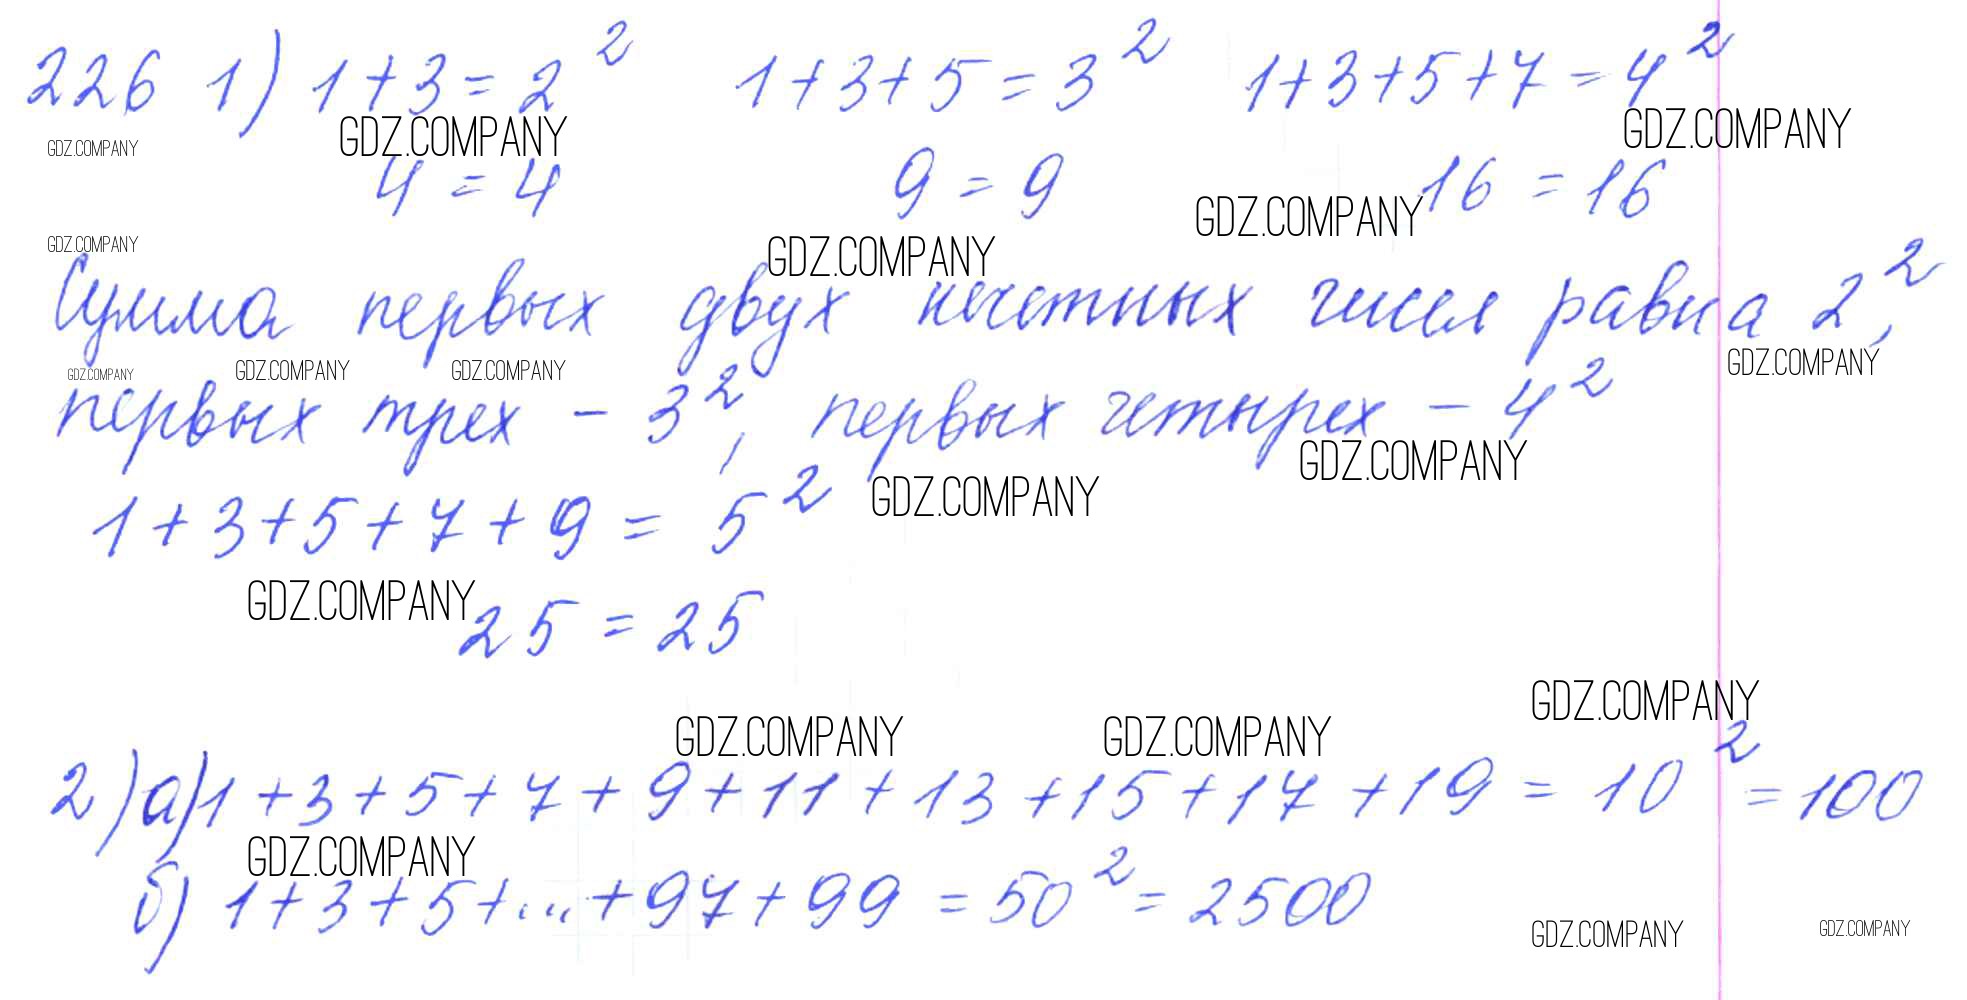 226 1) 1+3=2² 1+3+5=3² 1+3+5+7=4²
GDZ.COMPANY GDZ.COMPANY GDZ.COMPANY
4=4 9=9 16=16
GDZ.COMPANY
GDZ.COMPANY GDZ.COMPANY
Сумма первых двух нечетных чисел равна 2²,
GDZ.COMPANY GDZ.COMPANY GDZ.COMPANY GDZ.COMPANY
первых трех - 3², первых четырех - 4²
GDZ.COMPANY
GDZ.COMPANY
1+3+5+7+9=5²
GDZ.COMPANY
25=25
GDZ.COMPANY
GDZ.COMPANY GDZ.COMPANY
2) а) 1+3+5+7+9+11+13+15+17+19=10²=100
GDZ.COMPANY
б) 1+3+5+...+97+99=50²=2500
GDZ.COMPANY GDZ.COMPANY